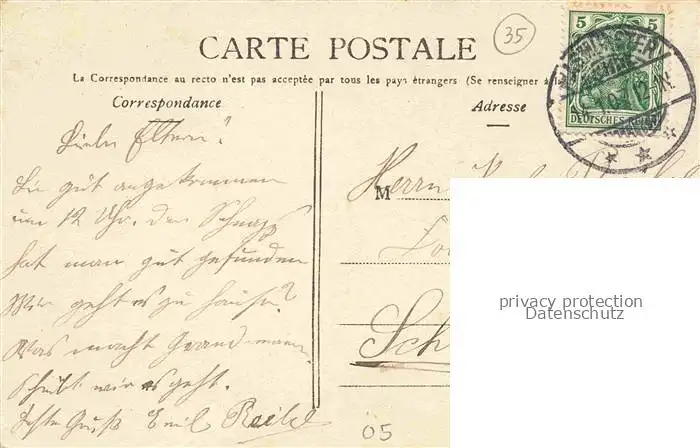 35
CARTE POSTALE
La Correspondance au recto n'est pas acceptée par tous les pays étrangers (Se renseigner à la
Correspondance
Adresse
5 5
DEUTSCHES REICH
Liebe Eltern!
Bin gut angekommen
um 12 Uhr. Den Schnaps
hat man gut gefunden
Wie geht es zu Hause?
Was macht Grandmaman
Schreibt wie es geht.
Gruß Emil
M Herrn
Sch
privacy protection
Datenschutz
05